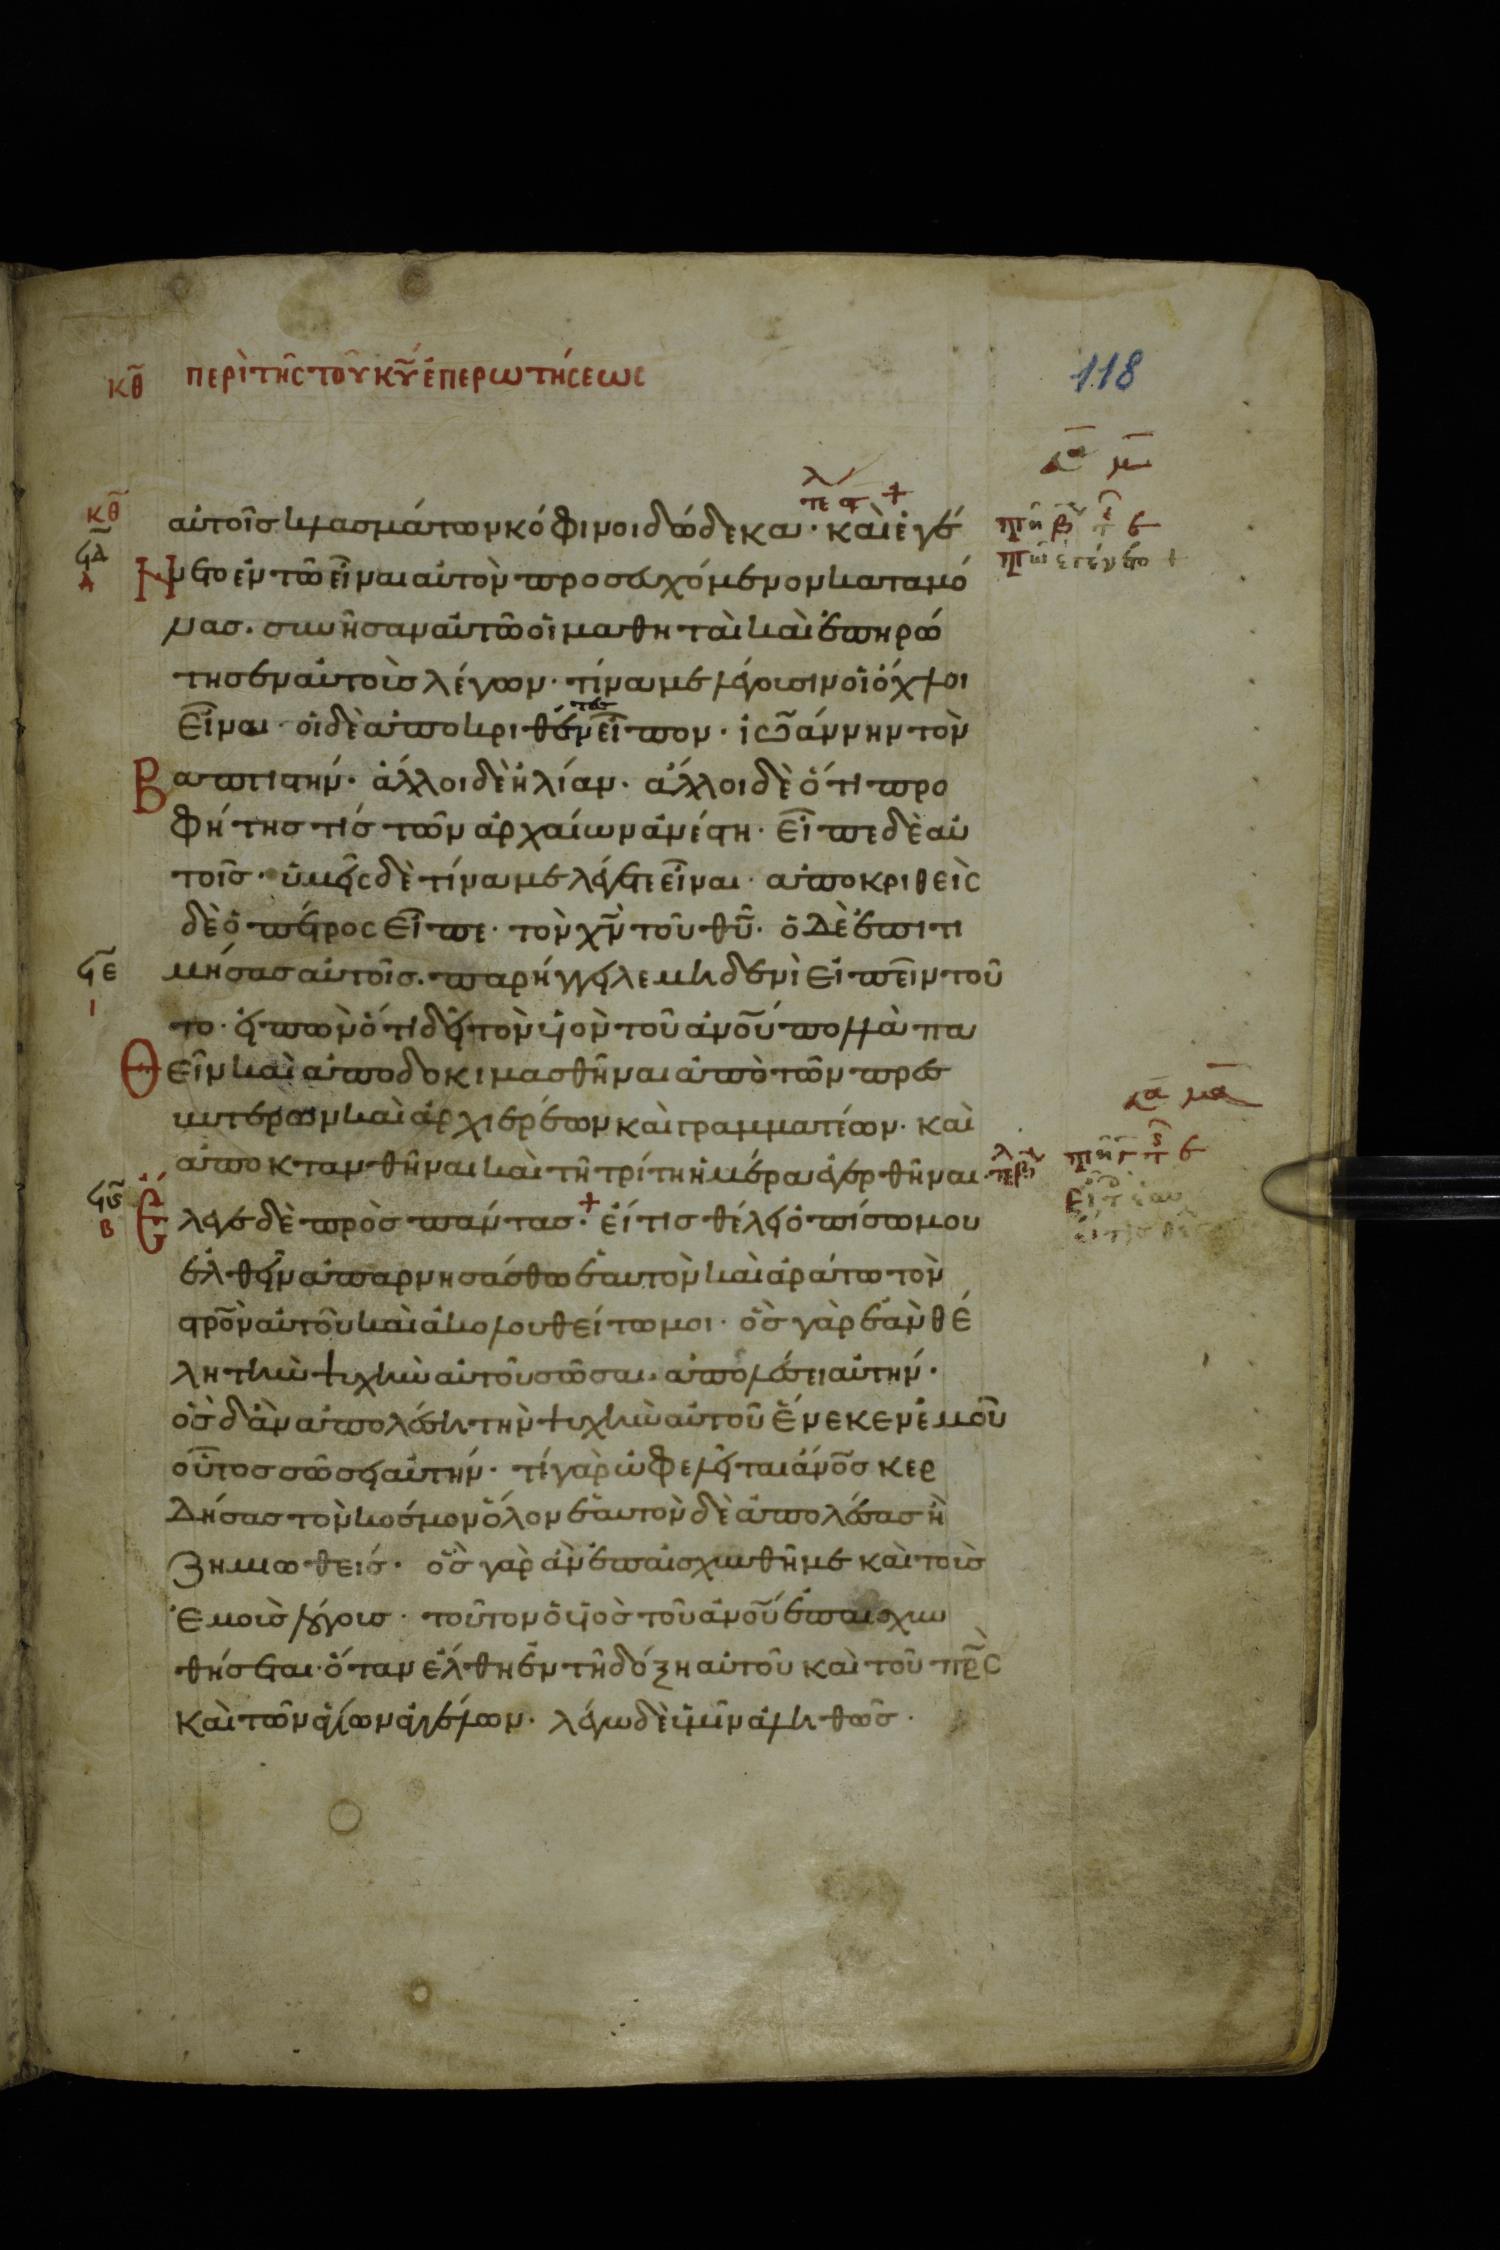 κθ περὶ τῆς τοῦ κυ ἐπερωτήσεως
118
κθ
αὐτοῖσ κλασμάτων κόφινοι δώδεκα · καὶ ἐγέ
ϟδ
νετο ἐν τῶ εἶναι αὐτὸν προσευχόμενον καταμό
νασ. συνῆσαν αὐτῶ οἱ μαθηταὶ καὶ ἐπηρώ
τησεν αὐτοὺσ λέγων · τίνα με λέγουσιν οἱ ὄχλοι
εἶναι · οἱ δὲ ἀποκριθέντες εἶπον · ἰωάννην τὸν
Βαπτιστήν · ἄλλοι δὲ ἠλίαν · ἄλλοι δὲ ὅτι προ
φήτησ τὶσ τῶν ἀρχαίων ἀνέστη · εἶπε δὲ αὐ
τοῖσ · ὑμεῖς δὲ τίνα με λέγετε εἶναι · ἀποκριθεὶς
δὲ ὁ πέτρος εἶπε · τὸν χν τοῦ θυ · ὁ δὲ ἐπιτι
ϟε μήσασ αὐτοῖσ. παρήγγειλε μηδενὶ εἰπεῖν τοῦ
ι
το · εἰπὼν ὅτι δεῖ τὸν υἱὸν τοῦ ἀνου πολλὰ πα
Θεῖν καὶ ἀποδοκιμασθῆναι ἀπὸ τῶν πρεσ
βυτέρων καὶ ἀρχιερέων καὶ γραμματέων · καὶ
ἀποκτανθῆναι καὶ τῆ τρίτη ἡμέρα ἐγερθῆναι ·
ϟϛ Ἔλεγε δὲ πρὸσ πάντασ · + εἴ τισ θέλει ὀπίσω μου
β
ἐλθεῖν ἀπαρνησάσθω ἑαυτὸν καὶ ἀράτω τὸν
στρον αὐτοῦ καὶ ἀκολουθείτω μοι · ὃσ γὰρ ἐὰν θέ
λη τὴν ψυχὴν αὐτοῦ σῶσαι. ἀπολέσει αὐτήν ·
ὃσ δ' ἂν ἀπολέση τὴν ψυχὴν αὐτοῦ ἕνεκεν ἐμοῦ
οὗτοσ σώσει αὐτήν · τί γὰρ ὠφελεῖται ἄνοσ κερ
δήσασ τὸν κόσμον ὅλον ἑαυτὸν δὲ ἀπολέσασ ἢ
ζημιωθείσ · ὃσ γὰρ ἂν ἐπαισχυνθῆ με καὶ τοὺσ
ἐμοὺσ λόγουσ · τοῦτον ὁ υἱὸσ τοῦ ἀνου ἐπαισχυν
θήσεται · ὅταν ἔλθη ἐν τῆ δόξη αὐτοῦ καὶ τοῦ πρς
καὶ τῶν ἁγίων ἀγγέλων · λέγω δὲ ὑμῖν ἀληθῶσ ·